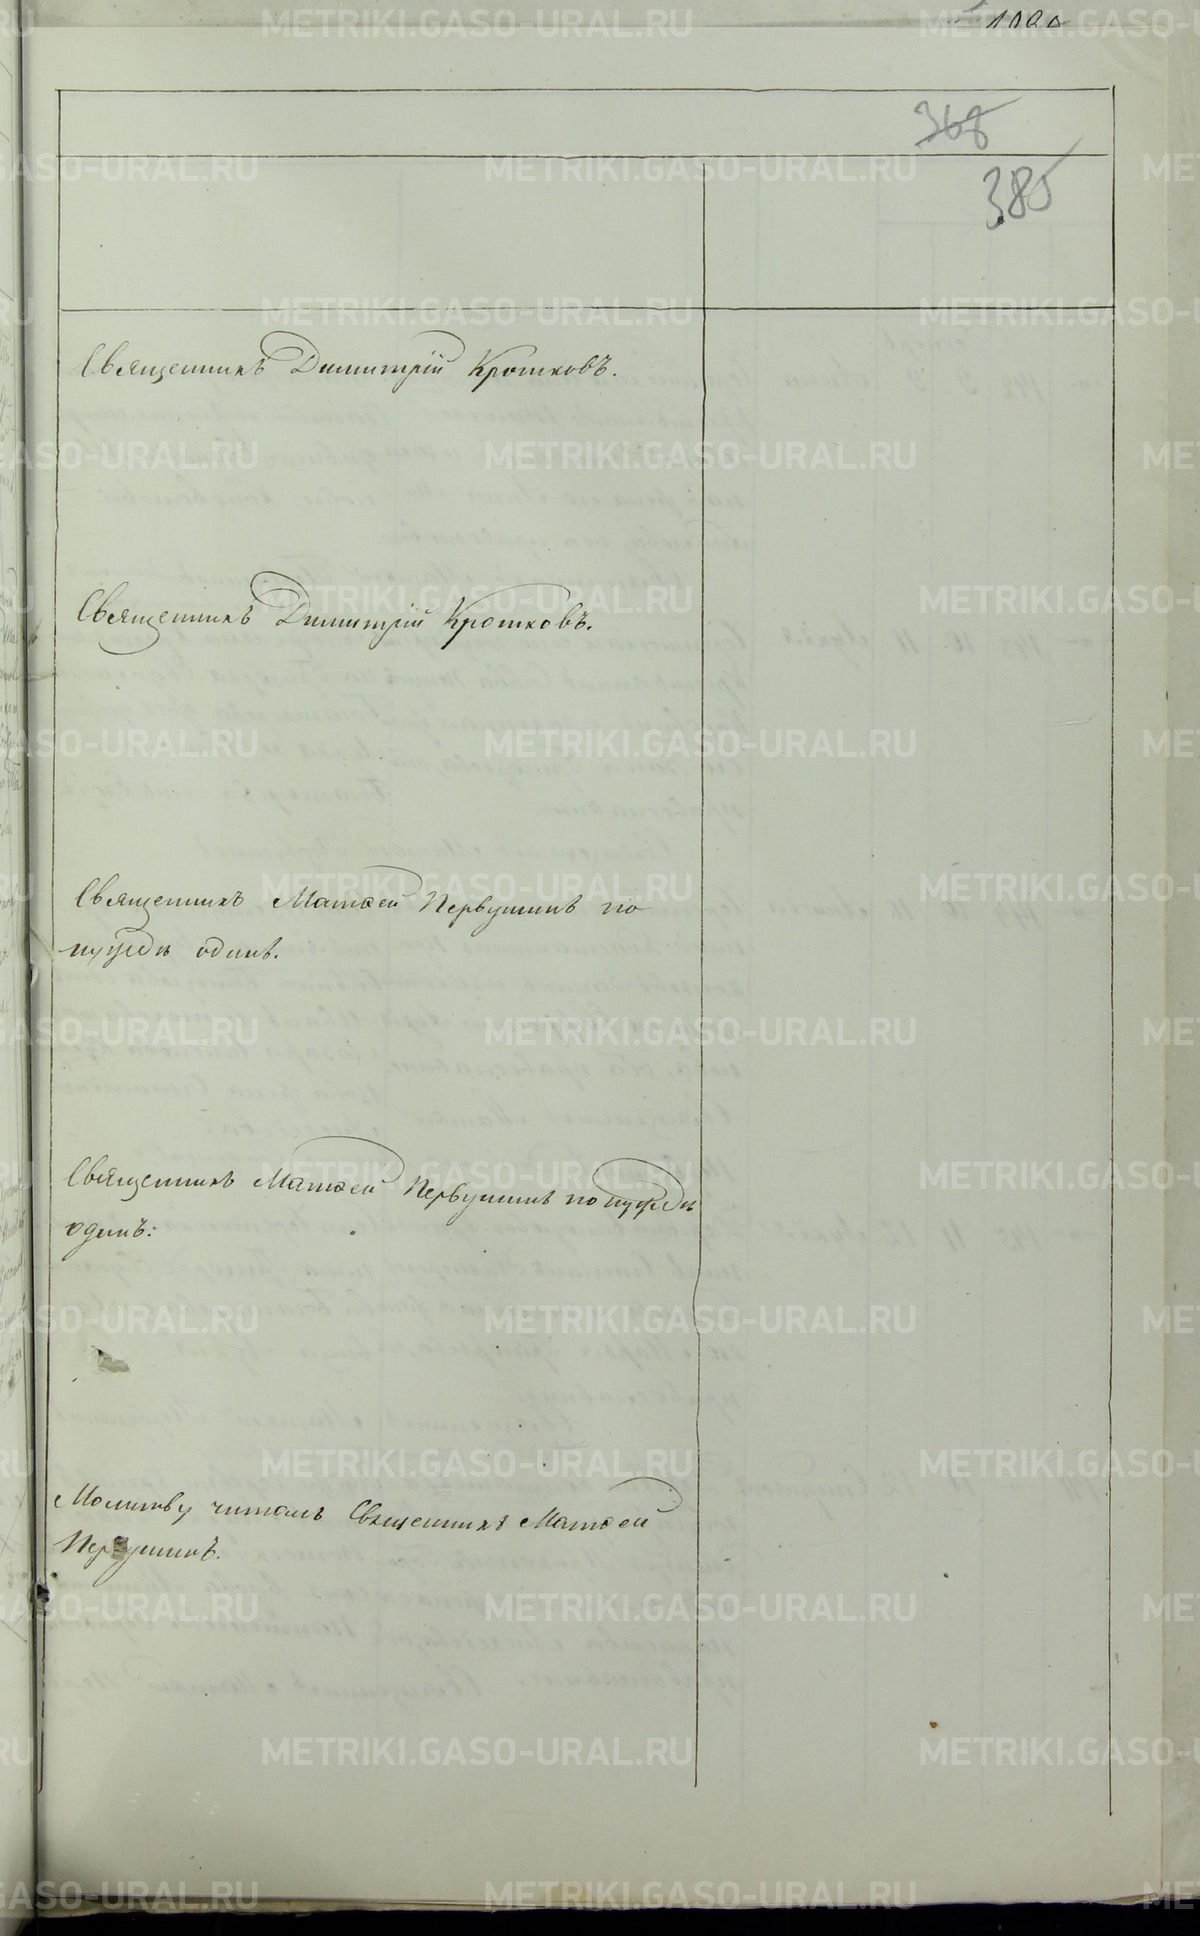 368
385
Священникъ Димитрій Кротковъ.
Священникъ Димитрій Кротковъ.
Священникъ Матѳей Первушинъ по
нуждѣ одинъ.
Священникъ Матѳей Первушинъ по нуждѣ
одинъ:
Молитву читалъ Священникъ Матѳей
Первушинъ.
METRIKI.GASO-URAL.RU